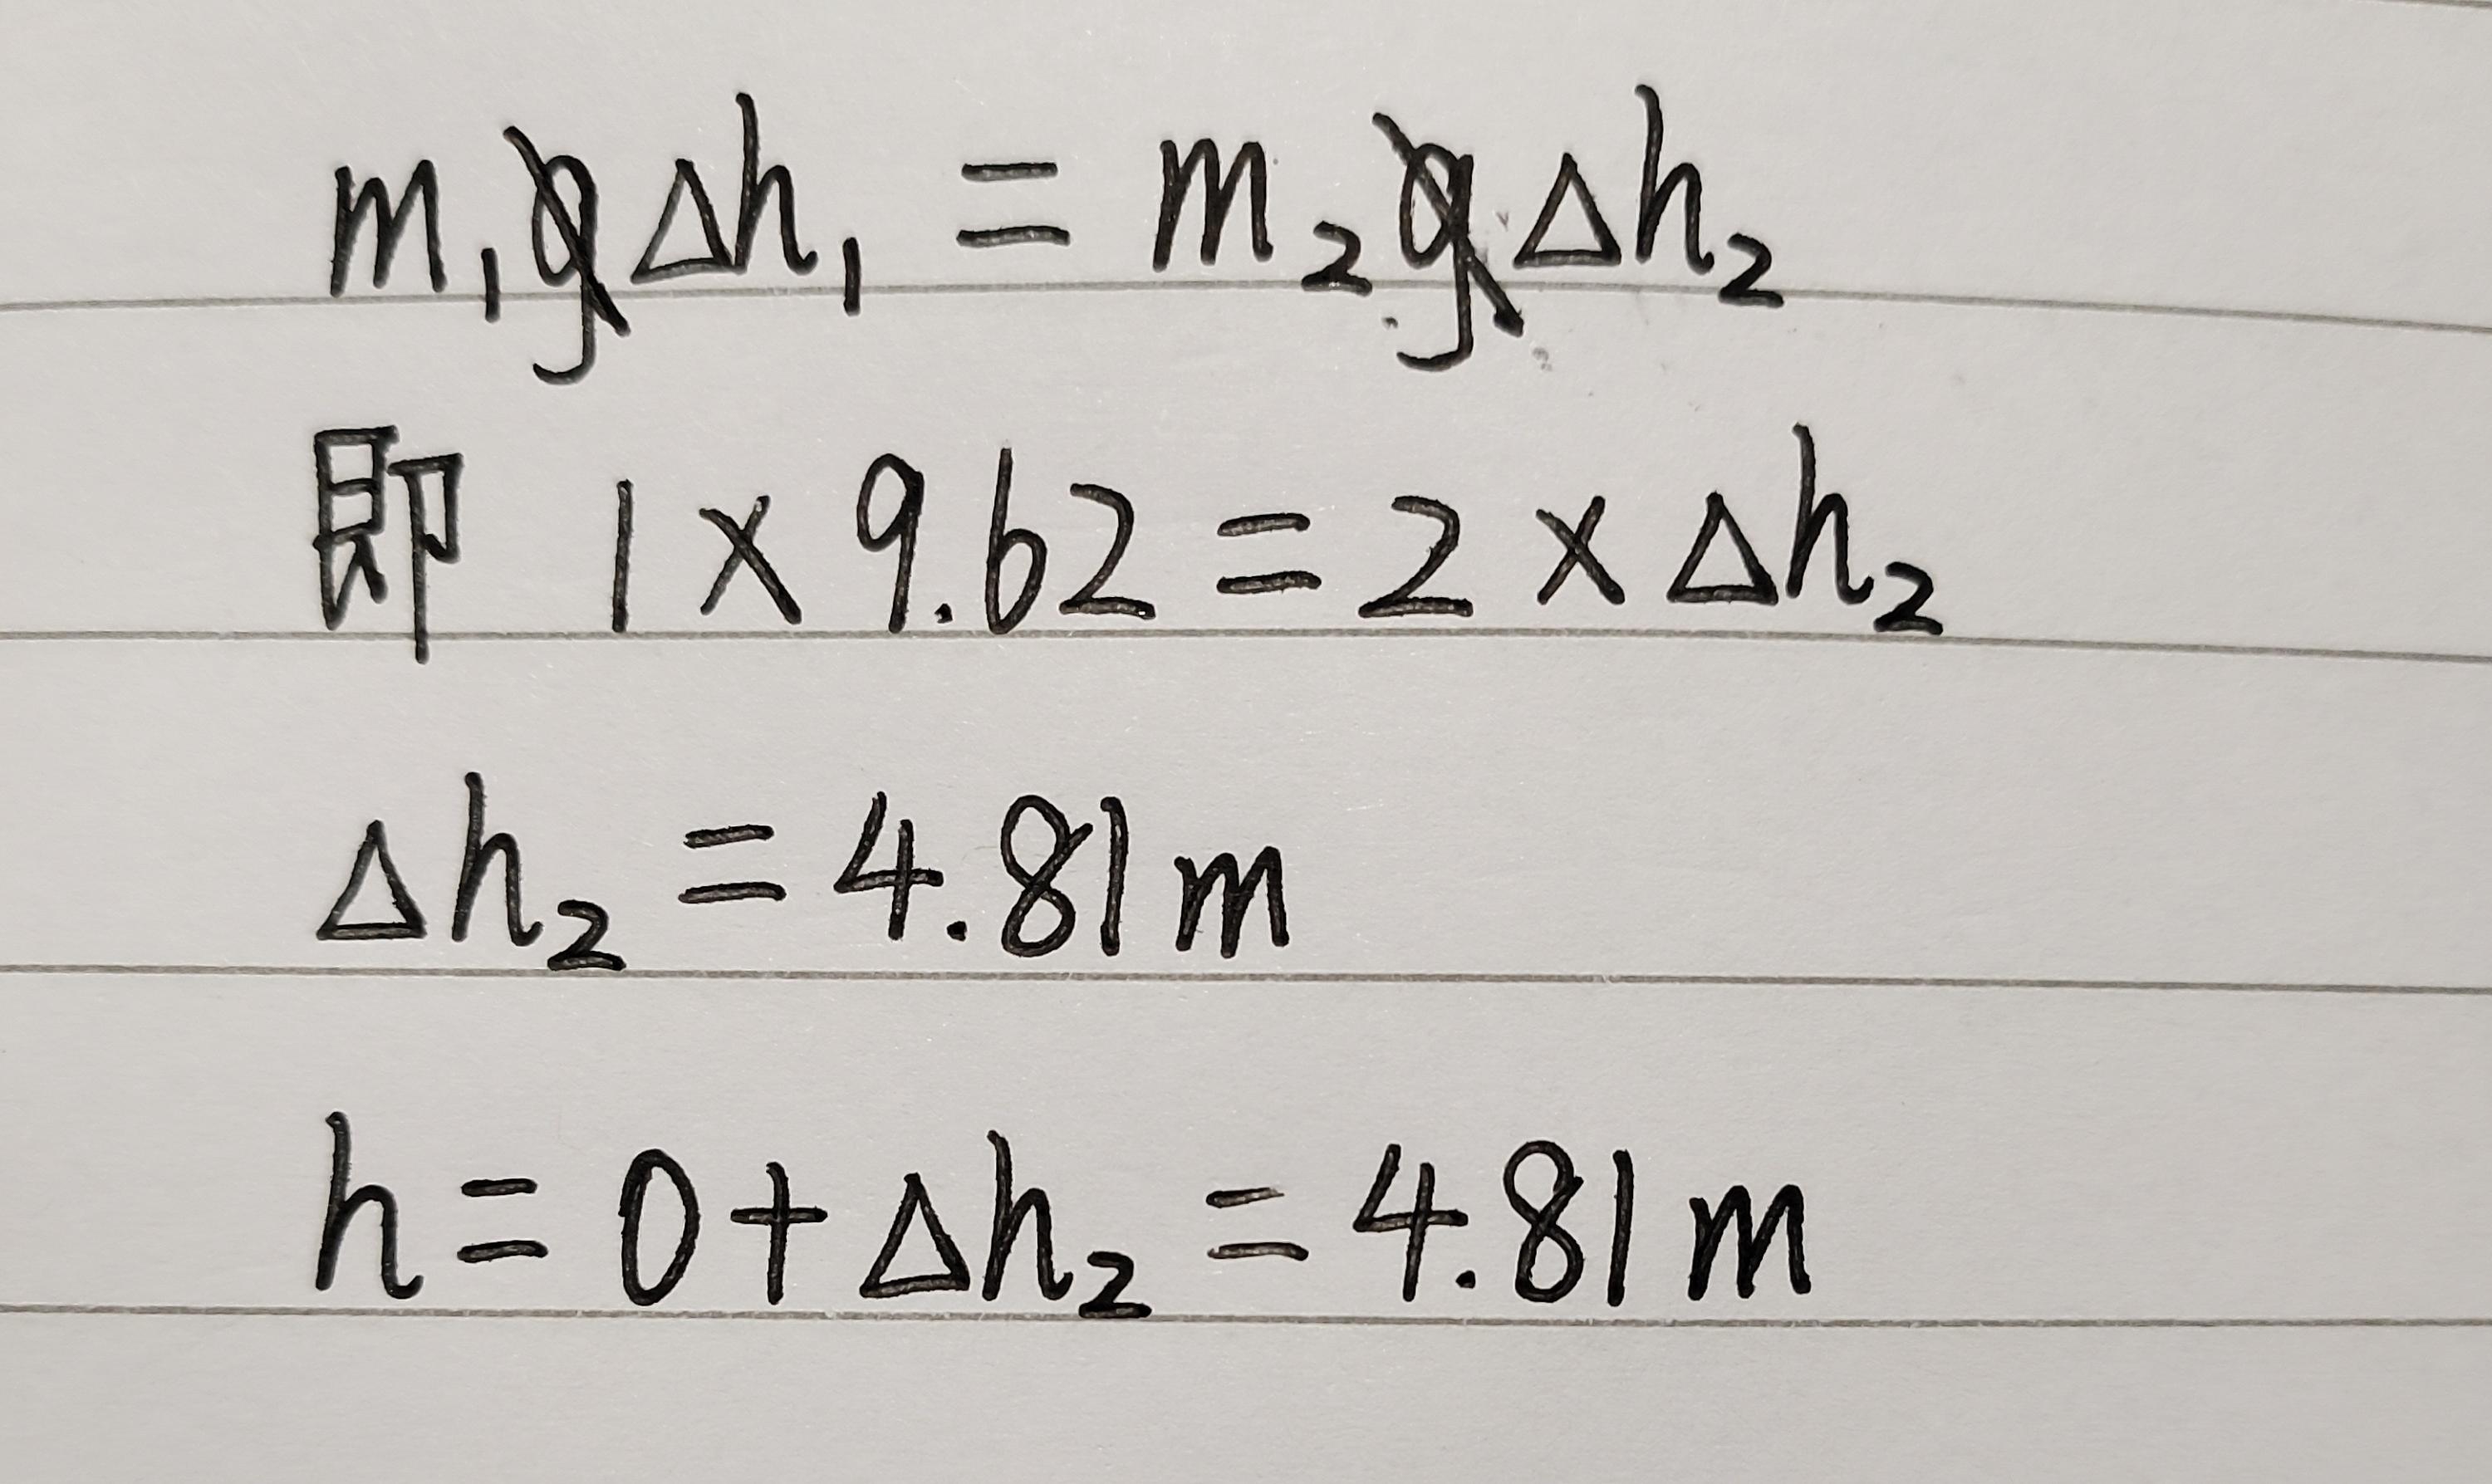 m₁gΔh₁ = m₂gΔh₂
即 1 × 9.62 = 2 × Δh₂
Δh₂ = 4.81 m
h = 0 + Δh₂ = 4.81 m